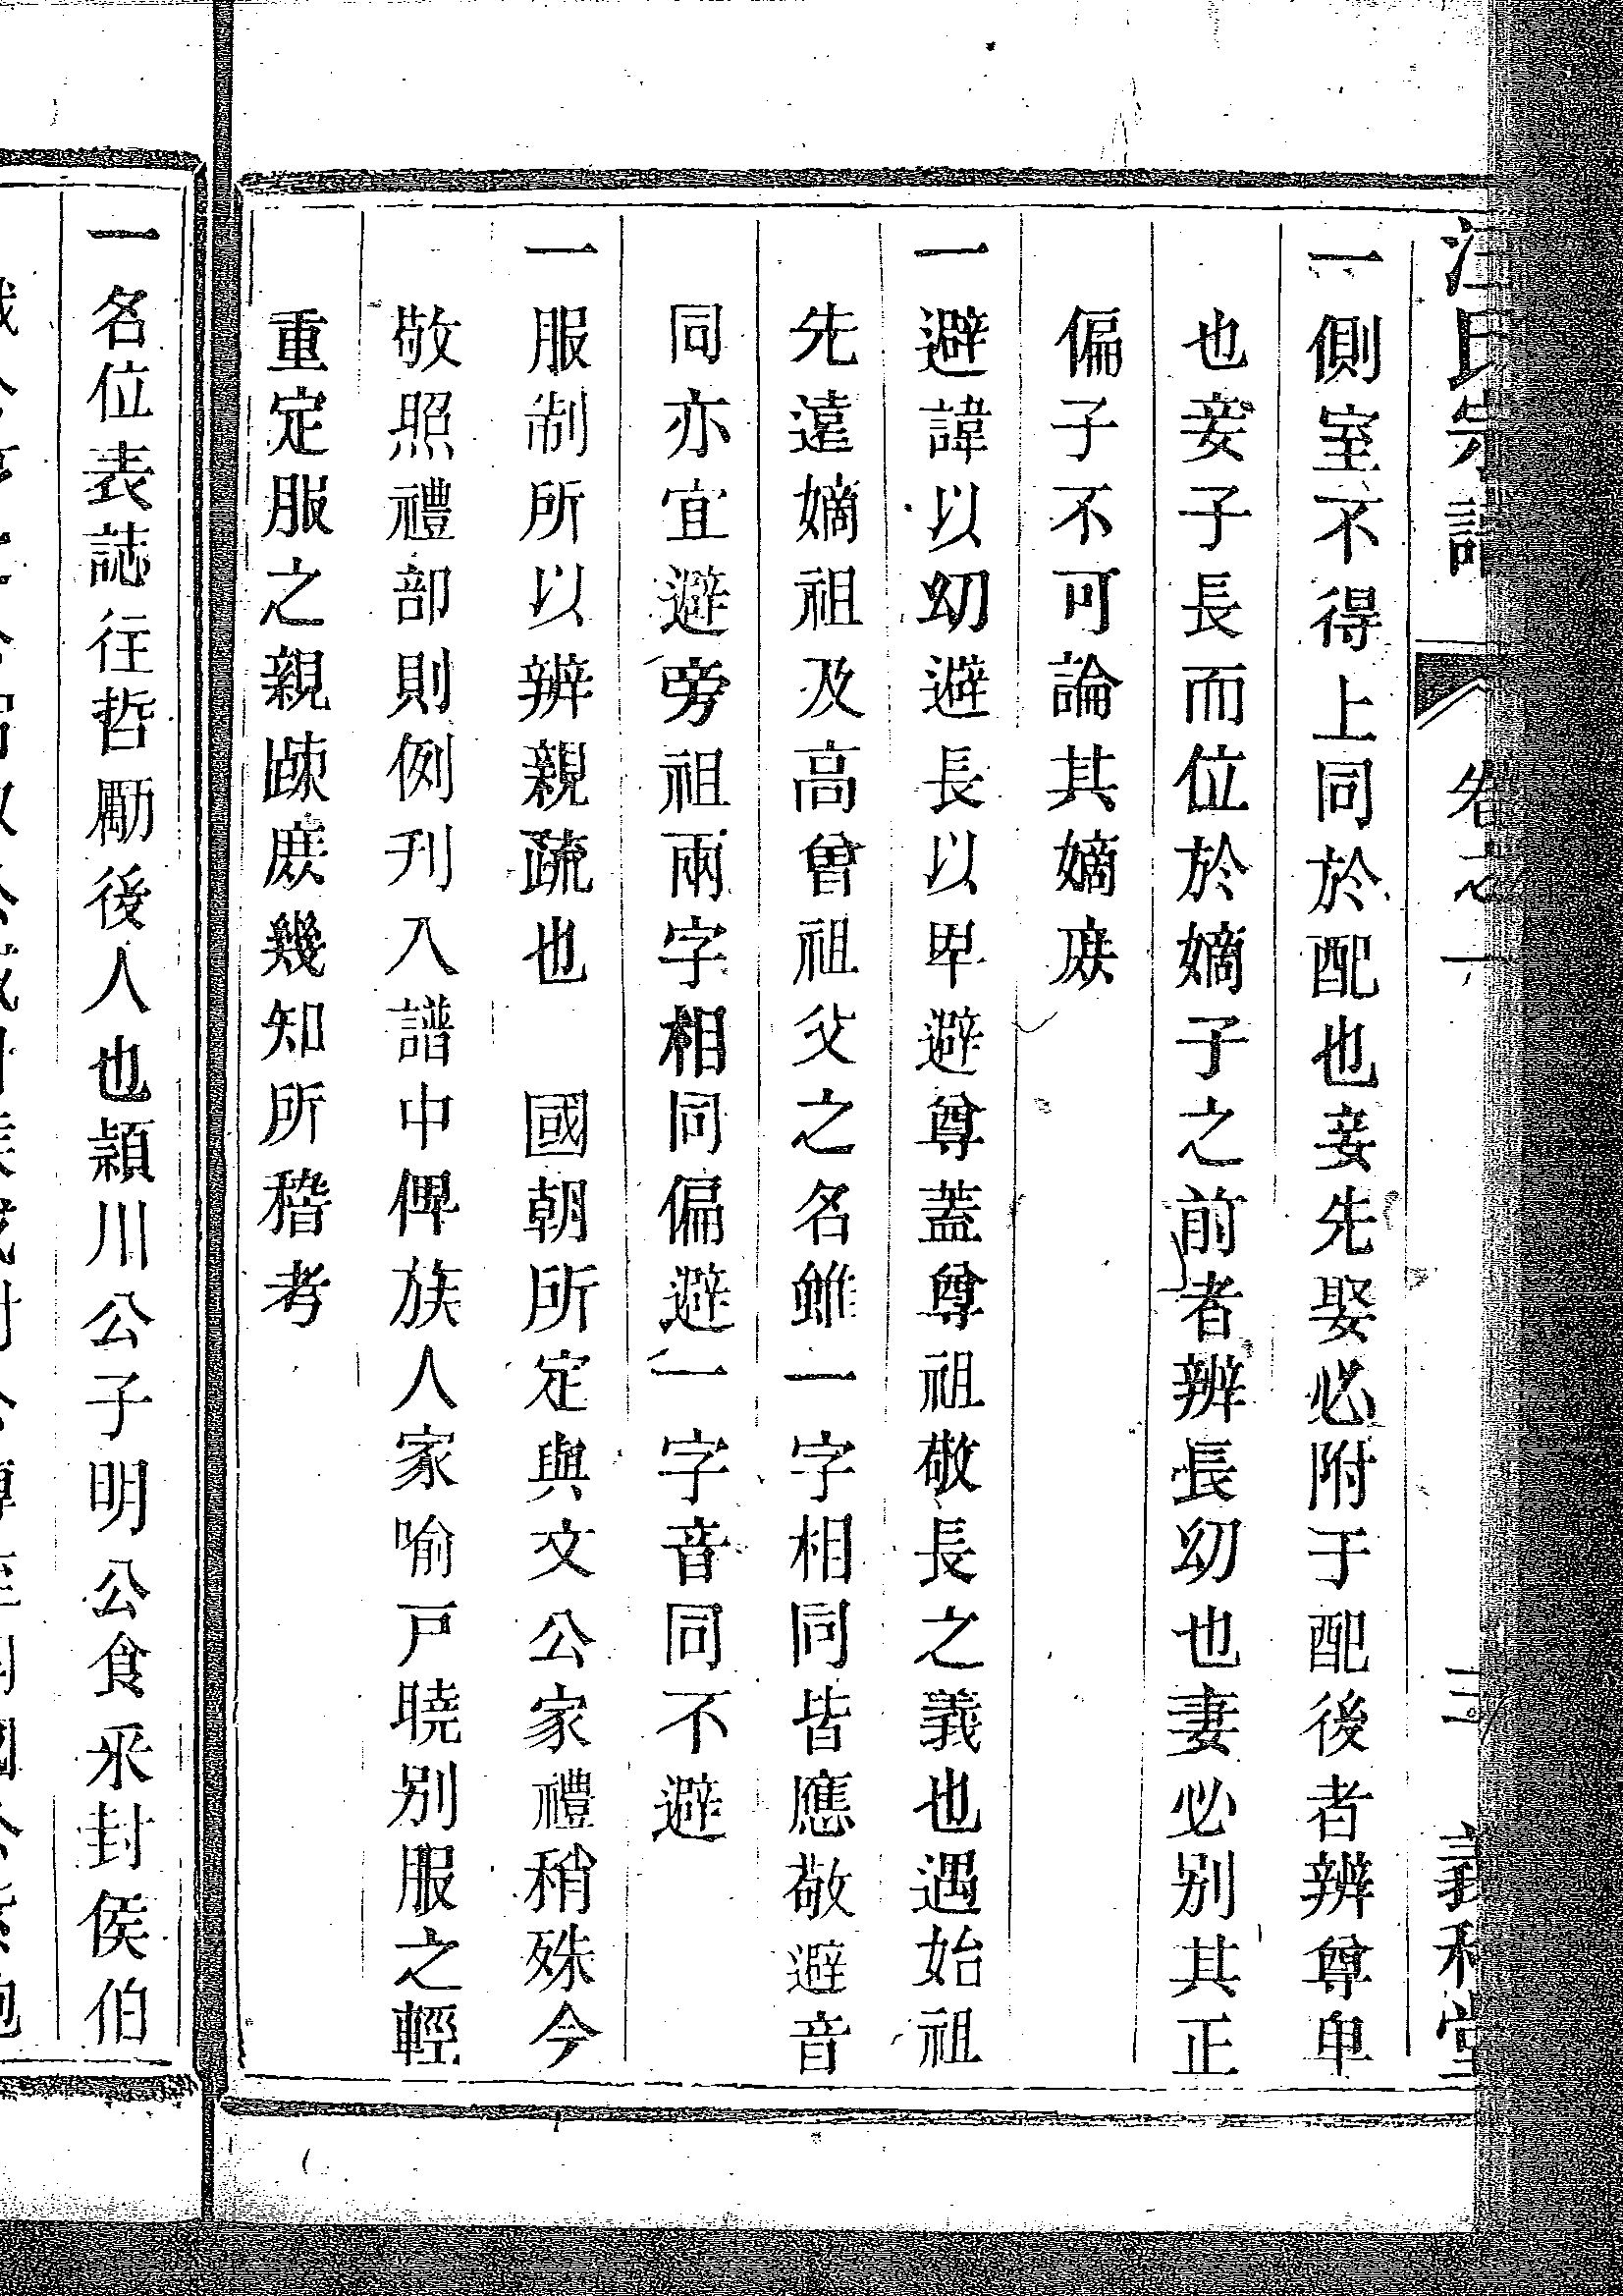 氏宗譜 卷之一 三 義和堂
一側室不得上同於配也妾先娶必附于配後者辨尊卑
也妾子長而位於嫡子之前者辨長幼也妻必别其正
偏子不可論其嫡庶
一避諱以幼避長以卑避尊蓋尊祖敬長之義也遇始祖
先遠嫡祖及高曾祖父之名雖一字相同皆應敬避音
同亦宜避旁祖兩字相同偏避一字音同不避
一服制所以辨親疏也 國朝所定與文公家禮稍殊今
敬照禮部則例刋入譜中俾族人家喻戸曉别服之輕
重定服之親疎庶幾知所稽考
一名位表誌往哲勵後人也潁川公子明公食采封侯伯